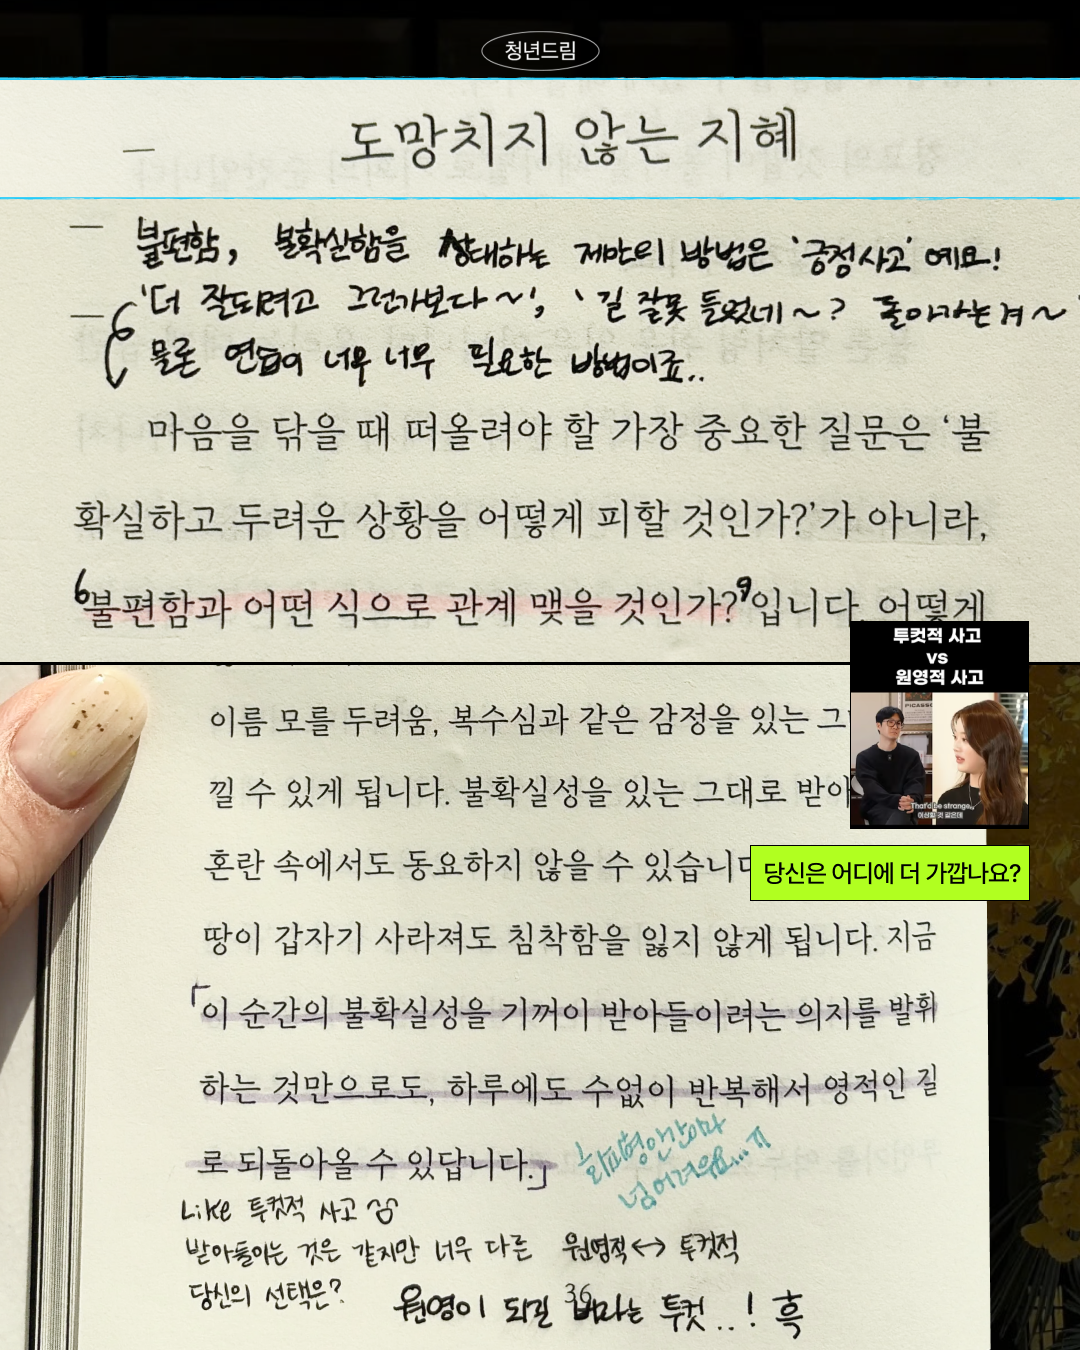 청년드림
도망치지 않는 지혜
불편함, 불확실함을 상대하는 제만의 방법은 '긍정사고' 예요!
'더 잘되려고 그런가보다~', '길 잘못 들었네~? 돌아가는겨~'
물론 연습이 너무 너무 필요한 방법이죠..
마음을 닦을 때 떠올려야 할 가장 중요한 질문은 ‘불
확실하고 두려운 상황을 어떻게 피할 것인가?’가 아니라,
‘불편함과 어떤 식으로 관계 맺을 것인가?’입니다. 어떻게
투컷적 사고
vs
원영적 사고
PICASSO
That'd be strange.
이상할 것 같은데
당신은 어디에 더 가깝나요?
이름 모를 두려움, 복수심과 같은 감정을 있는 그
낄 수 있게 됩니다. 불확실성을 있는 그대로 받아
혼란 속에서도 동요하지 않을 수 있습니다
땅이 갑자기 사라져도 침착함을 잃지 않게 됩니다. 지금
「이 순간의 불확실성을 기꺼이 받아들이려는 의지를 발휘
하는 것만으로도, 하루에도 수없이 반복해서 영적인 길
로 되돌아올 수 있답니다.」
회피형인간이라
넘 어려워요...ㅠ
Like 투컷적 사고
받아들이는 것은 같지만 너무 다른 원영적↔투컷적
당신의 선택은?
36
원영이 되길 바라는 투컷..! 흑